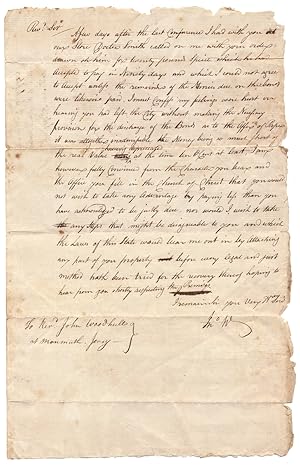 Revd. Sir
A few days after the last Conference I had with you at
my Store Doctor Smith called on me with your order
drawn on him for twenty pounds Specie which he has
accepted to pay in Ninety days and which I could not agree to
accept unless the remainder of the Monies due on the bonds
were likewise paid. I must confess my feelings were hurt on
hearing you had left the City without making the Necessary
provision for the discharge of the Bonds as to the Offer of Paper
it was altogether inadmissible the Money being no more than
the real Value at the time lent at least. I am
however fully Convinced from the Character you bear and
the office you fill in the Church of Christ that you would
not wish to take any advantage by paying less than you
have acknowledged to be justly due, nor would I wish to take
any steps that might be disagreeable to you and which
the Laws of this State would bear me out in by attaching
any part of your property before every legal and just
method hath been tried for the recovery thereof hoping to
hear from you shortly respecting the Premises
I remain with you Very
To Revd. John Woodhull
at Monmouth Jersy
Jno.